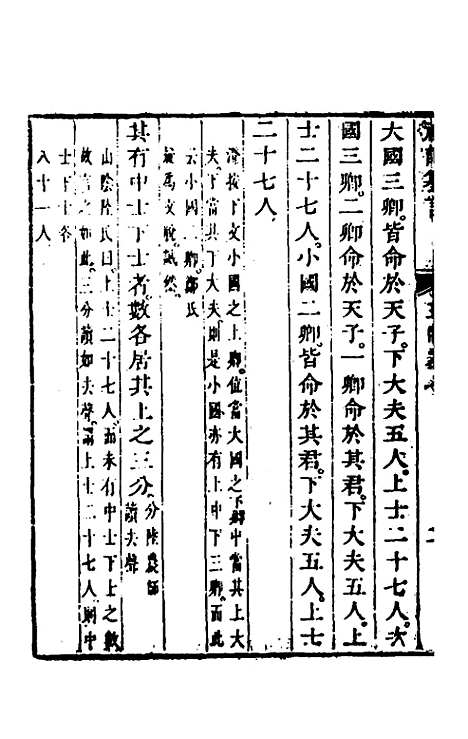 大國三卿。皆命於天子。下大夫五人。上士二十七人。次
國三卿。二卿命於天子。一卿命於其君。下大夫五人。上
士二十七人。小國二卿。皆命於其君。下大夫五人。上士
二十七人。
澄按下文小國之上卿。位當大國之下卿。中當其上大
夫。下當其下大夫。則是小國亦有上中下三卿。而此
云小國二卿。鄭氏
疑爲文脫。誤然。
其有中士下士者。數各居其上之三分。分陸農師讀去聲
山陰陸氏曰。上士二十七人。而未有中士下士之數。
故言之如此。三分讀如去聲。謂上士二十七人。則中
士下士各
八十一人